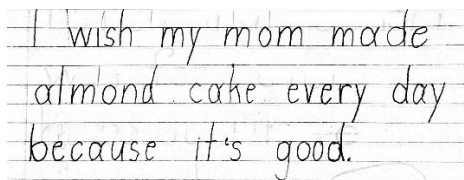 I wish my mom made
almond cake every day
because it's good.